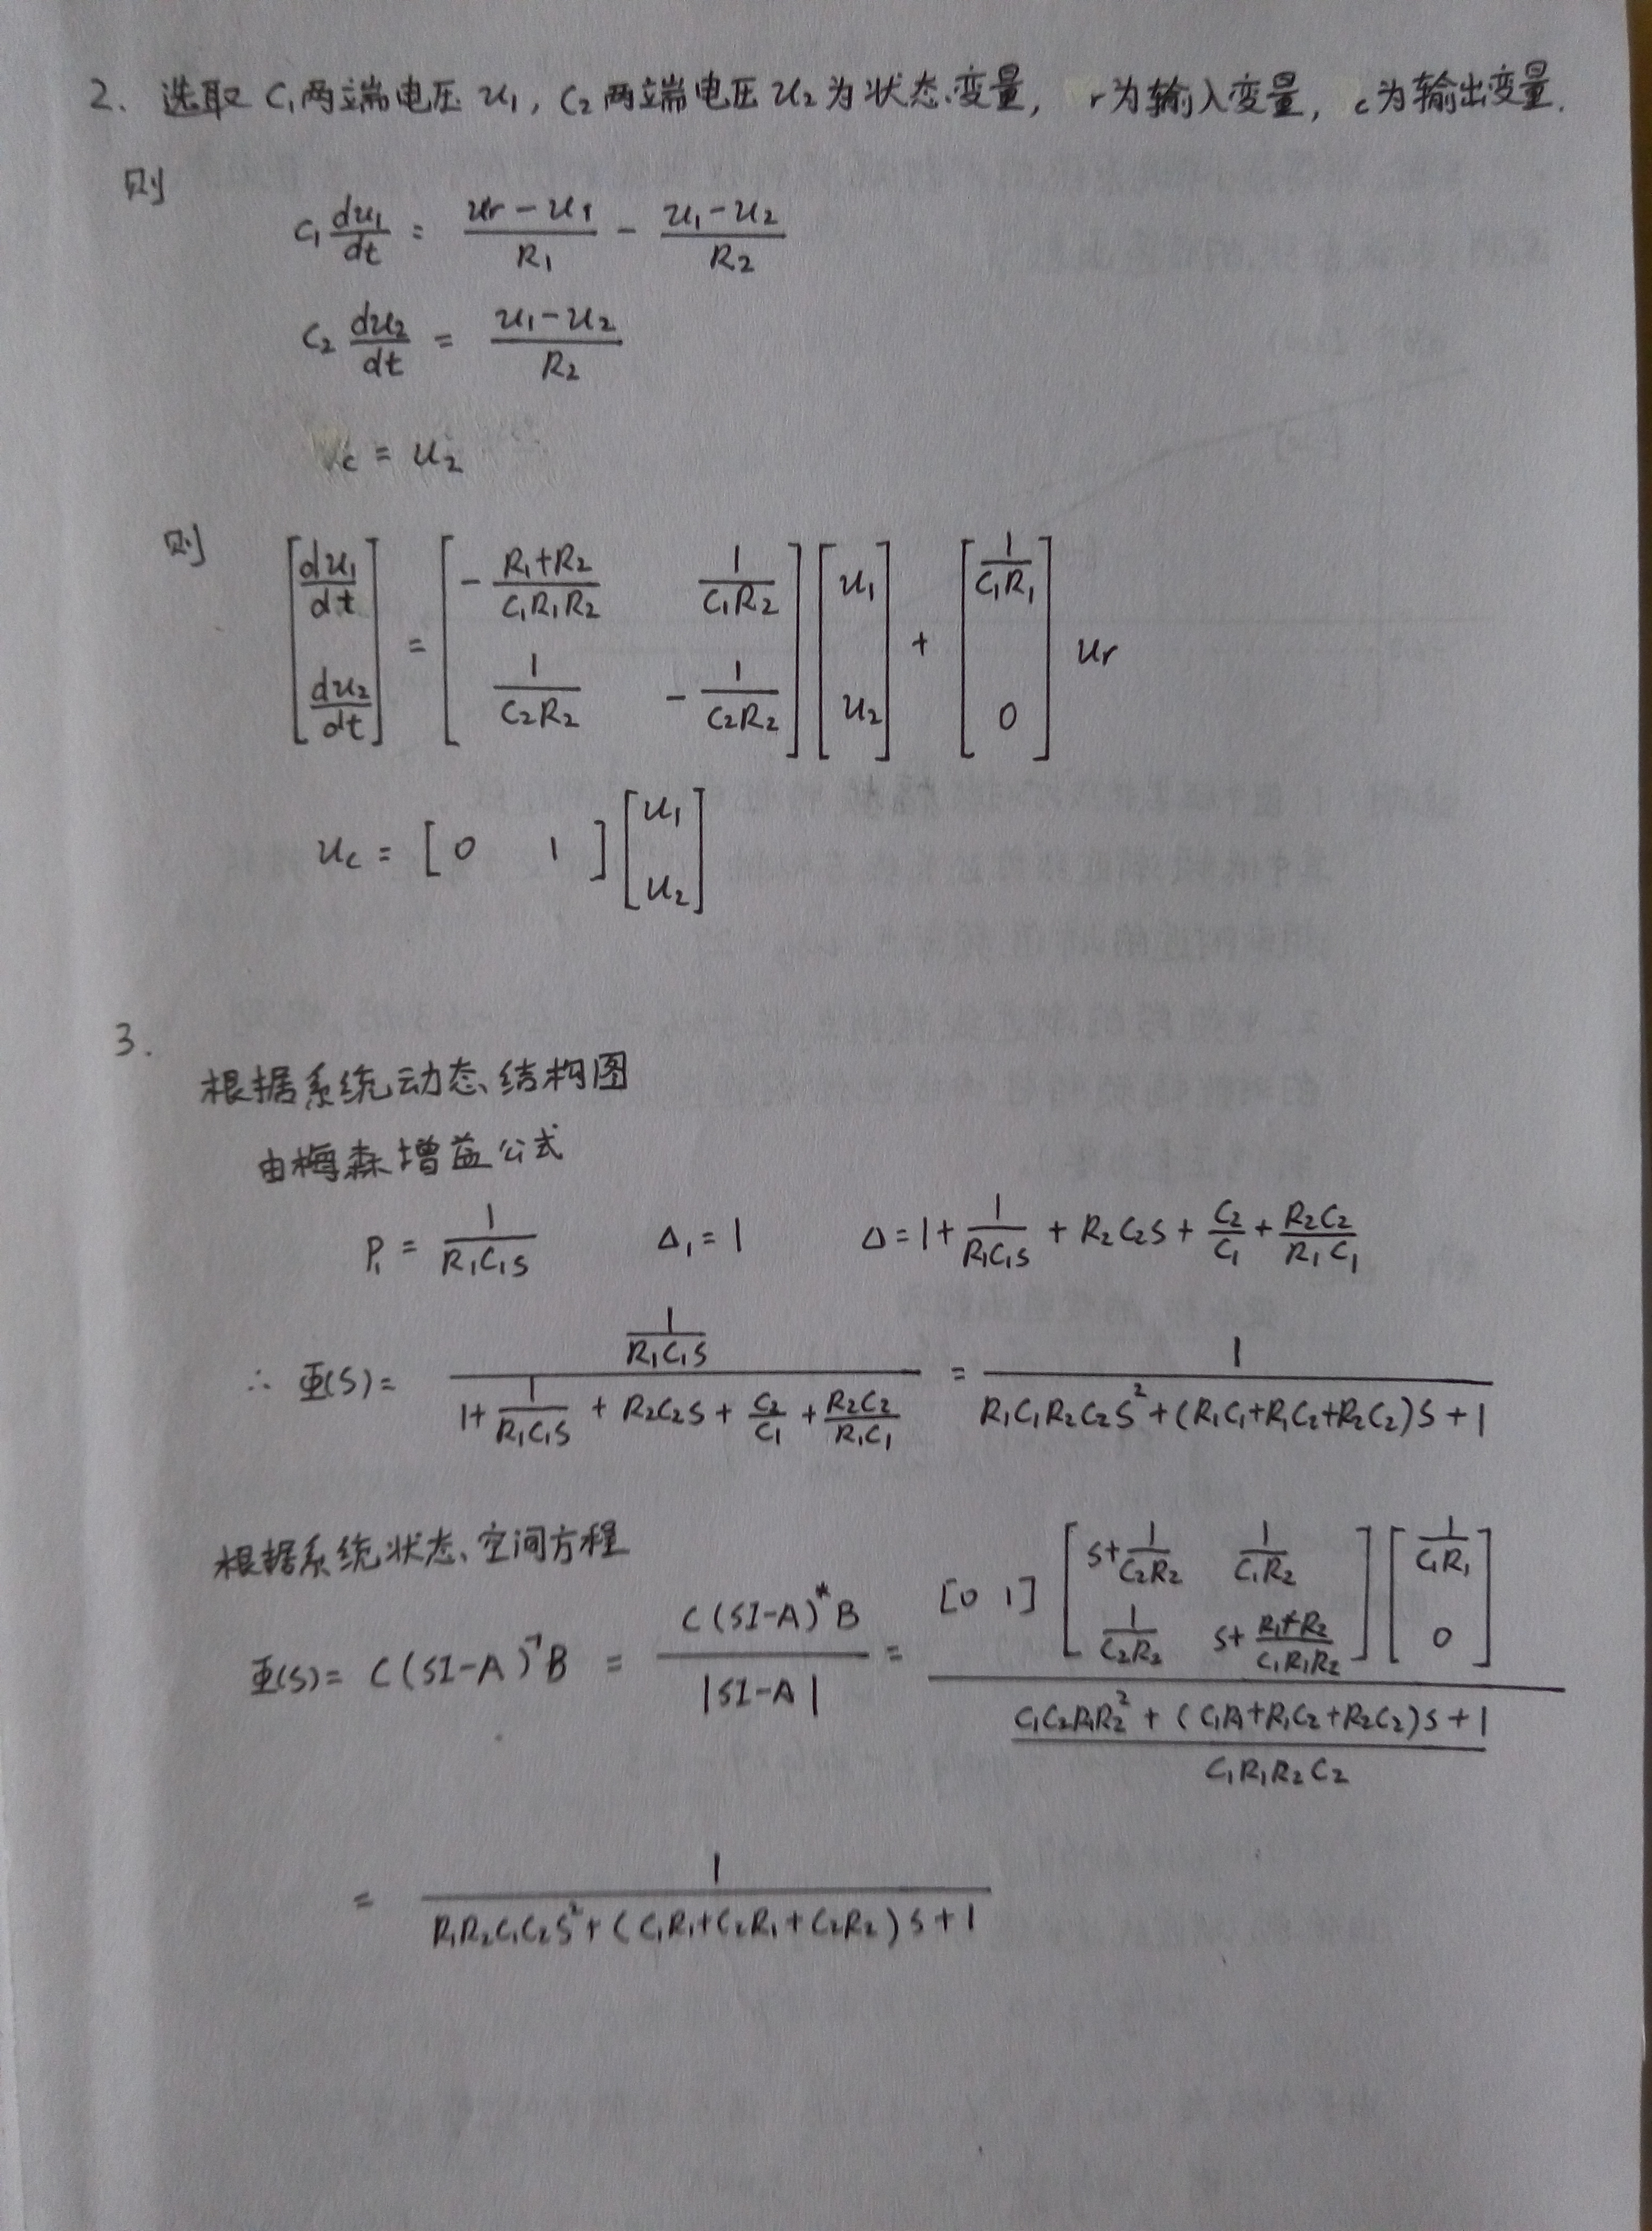 2. 选取 C₁两端电压 u₁, C₂两端电压 u₂ 为状态变量, r为输入变量, c为输出变量.
则
C₁ du₁/dt = (ur - u₁)/R₁ - (u₁ - u₂)/R₂
C₂ du₂/dt = (u₁ - u₂)/R₂
c = u₂
则 [du₁/dt; du₂/dt] = [-(R₁+R₂)/(C₁R₁R₂) 1/(C₁R₂); 1/(C₂R₂) -1/(C₂R₂)] [u₁; u₂] + [1/(C₁R₁); 0] ur
uc = [0 1] [u₁; u₂]
3.
根据系统动态结构图
由梅森增益公式
P₁ = 1/(R₁C₁s) Δ₁ = 1 Δ = 1 + 1/(R₁C₁s) + R₂C₂s + C₂/C₁ + R₂C₂/(R₁C₁)
∴ Φ(s) = (1/(R₁C₁s)) / (1 + 1/(R₁C₁s) + R₂C₂s + C₂/C₁ + R₂C₂/(R₁C₁)) = 1/(R₁C₁R₂C₂s² + (R₁C₁+R₁C₂+R₂C₂)s + 1)
根据系统状态空间方程
Φ(s) = C(sI-A)⁻¹B = C(sI-A)*B / |sI-A| = [0 1] [s+1/(C₂R₂) 1/(C₁R₂); 1/(C₂R₂) s+(R₁+R₂)/(C₁R₁R₂)] [1/(C₁R₁); 0] / ((C₁C₂R₁R₂² + (C₁R₁+R₁C₂+R₂C₂)s + 1)/(C₁R₁R₂C₂))
= 1/(R₁R₂C₁C₂s² + (C₁R₁+C₂R₁+C₂R₂)s + 1)